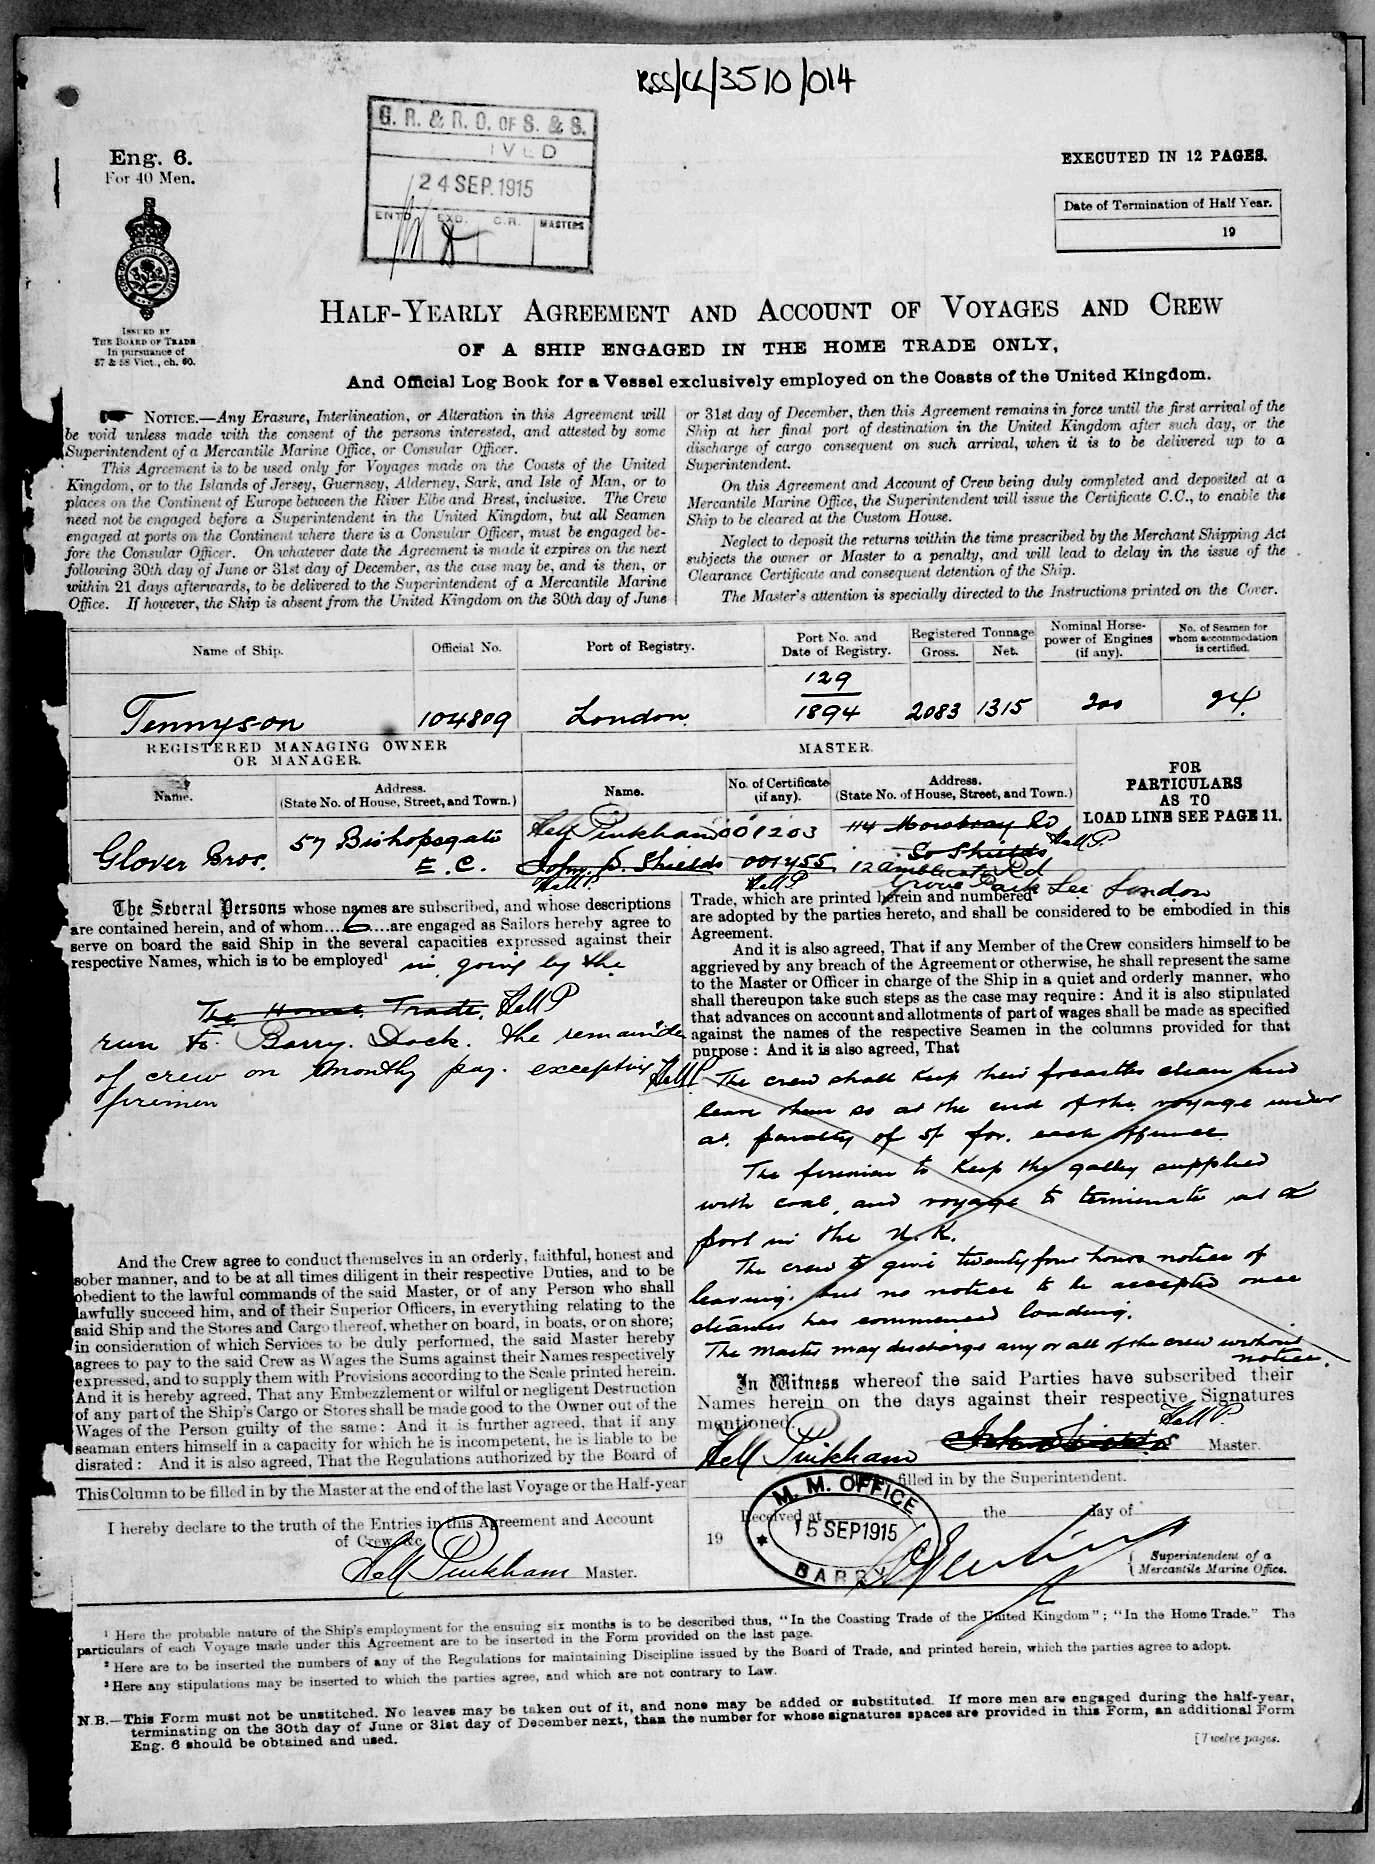 RSS/CL/3510/014
G. R. & R. O. OF S. & S.
24 SEP. 1915
ENTD EXD. C.R. MASTERS
Eng. 6.
For 40 Men.
ISSUED BY
THE BOARD OF TRADE
In pursuance of
57 & 58 Vict., ch. 60.
EXECUTED IN 12 PAGES.
Date of Termination of Half Year.
19
HALF-YEARLY AGREEMENT AND ACCOUNT OF VOYAGES AND CREW
OF A SHIP ENGAGED IN THE HOME TRADE ONLY,
And Official Log Book for a Vessel exclusively employed on the Coasts of the United Kingdom.
NOTICE.—Any Erasure, Interlineation, or Alteration in this Agreement will
be void unless made with the consent of the persons interested, and attested by some
Superintendent of a Mercantile Marine Office, or Consular Officer.
This Agreement is to be used only for Voyages made on the Coasts of the United
Kingdom, or to the Islands of Jersey, Guernsey, Alderney, Sark, and Isle of Man, or to
places on the Continent of Europe between the River Elbe and Brest, inclusive. The Crew
need not be engaged before a Superintendent in the United Kingdom, but all Seamen
engaged at ports on the Continent where there is a Consular Officer, must be engaged be-
fore the Consular Officer. On whatever date the Agreement is made it expires on the next
following 30th day of June or 31st day of December, as the case may be, and is then, or
within 21 days afterwards, to be delivered to the Superintendent of a Mercantile Marine
Office. If however, the Ship is absent from the United Kingdom on the 30th day of June
or 31st day of December, then this Agreement remains in force until the first arrival of the
Ship at her final port of destination in the United Kingdom after such day, or the
discharge of cargo consequent on such arrival, when it is to be delivered up to a
Superintendent.
On this Agreement and Account of Crew being duly completed and deposited at a
Mercantile Marine Office, the Superintendent will issue the Certificate C.C., to enable the
Ship to be cleared at the Custom House.
Neglect to deposit the returns within the time prescribed by the Merchant Shipping Act
subjects the owner or Master to a penalty, and will lead to delay in the issue of the
Clearance Certificate and consequent detention of the Ship.
The Master's attention is specially directed to the Instructions printed on the Cover.
Name of Ship. Official No. Port of Registry. Port No. and Date of Registry. Registered Tonnage Gross. Net. Nominal Horse-power of Engines (if any). No. of Seamen for whom accommodation is certified.
Tennyson 104809 London 129 1894 2083 1315 200 24
REGISTERED MANAGING OWNER
OR MANAGER.
MASTER.
Name. Address. (State No. of House, Street, and Town.) Name. No. of Certificate (if any). Address. (State No. of House, Street, and Town.)
FOR
PARTICULARS
AS TO
LOAD LINE SEE PAGE 11.
Glover Bros. 57 Bishopsgate
E. C.
Pinkham 001203 114 Mowbray Rd
So Shields
John S. Shields 001455 12 Rd
Grove Park Lee London
The Several Persons whose names are subscribed, and whose descriptions
are contained herein, and of whom...6...are engaged as Sailors hereby agree to
serve on board the said Ship in the several capacities expressed against their
respective Names, which is to be employed¹ in going by the
The Home Trade.
run to Barry Dock. the remainder
of crew on monthly pay. excepting
firemen
And the Crew agree to conduct themselves in an orderly, faithful, honest and
sober manner, and to be at all times diligent in their respective Duties, and to be
obedient to the lawful commands of the said Master, or of any Person who shall
lawfully succeed him, and of their Superior Officers, in everything relating to the
said Ship and the Stores and Cargo thereof, whether on board, in boats, or on shore;
in consideration of which Services to be duly performed, the said Master hereby
agrees to pay to the said Crew as Wages the Sums against their Names respectively
expressed, and to supply them with Provisions according to the Scale printed herein.
And it is hereby agreed, That any Embezzlement or wilful or negligent Destruction
of any part of the Ship's Cargo or Stores shall be made good to the Owner out of the
Wages of the Person guilty of the same: And it is further agreed, that if any
seaman enters himself in a capacity for which he is incompetent, he is liable to be
disrated: And it is also agreed, That the Regulations authorized by the Board of
Trade, which are printed herein and numbered
are adopted by the parties hereto, and shall be considered to be embodied in this
Agreement.
And it is also agreed, That if any Member of the Crew considers himself to be
aggrieved by any breach of the Agreement or otherwise, he shall represent the same
to the Master or Officer in charge of the Ship in a quiet and orderly manner, who
shall thereupon take such steps as the case may require: And it is also stipulated
that advances on account and allotments of part of wages shall be made as specified
against the names of the respective Seamen in the columns provided for that
purpose: And it is also agreed, That
The crew shall keep their forecastles clean and
leave them so at the end of the voyage under
a penalty of 5/ for each offence
The firemen to keep the galley supplied
with coal, and voyage to terminate at a
port in the U.K.
The crew to give twenty four hours notice of
leaving. but no notice to be accepted once
steamer has commenced loading.
The master may discharge any or all of the crew without
notice.
In Witness whereof the said Parties have subscribed their
Names herein on the days against their respective Signatures
mentioned.
Pinkham Master.
This Column to be filled in by the Master at the end of the last Voyage or the Half-year
I hereby declare to the truth of the Entries in this Agreement and Account
of Crew, &c.
Pinkham Master.
filled in by the Superintendent.
Received at the day of
19
M. M. OFFICE
15 SEP 1915
BARRY
Superintendent of a
Mercantile Marine Office.
¹ Here the probable nature of the Ship's employment for the ensuing six months is to be described thus, "In the Coasting Trade of the United Kingdom"; "In the Home Trade." The
particulars of each Voyage made under this Agreement are to be inserted in the Form provided on the last page.
² Here are to be inserted the numbers of any of the Regulations for maintaining Discipline issued by the Board of Trade, and printed herein, which the parties agree to adopt.
³ Here any stipulations may be inserted to which the parties agree, and which are not contrary to Law.
N.B.—This Form must not be unstitched. No leaves may be taken out of it, and none may be added or substituted. If more men are engaged during the half-year,
terminating on the 30th day of June or 31st day of December next, than the number for whose signatures spaces are provided in this Form, an additional Form
Eng. 6 should be obtained and used.
[Twelve pages.